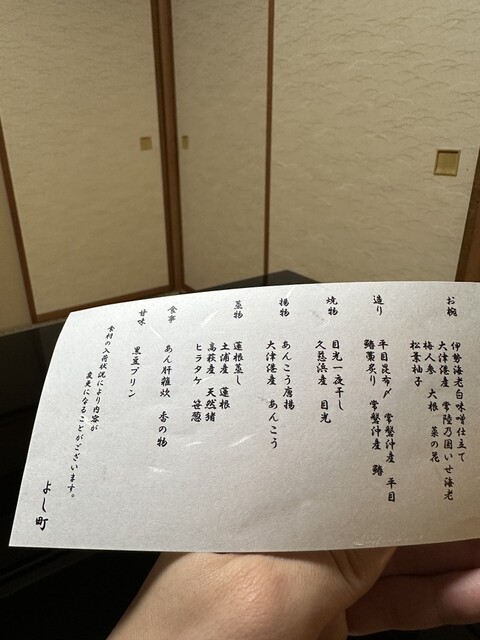 お椀
伊勢海老白味噌仕立て
大津港産 常陸乃国いせ海老
梅人参 大根 菜の花
松葉柚子
造り
平目昆布〆 常磐沖産 平目
鰆藁炙り 常磐沖産 鰆
焼物
目光一夜干し
久慈浜産 目光
揚物
あんこう唐揚
大津港産 あんこう
蒸物
蓮根蒸し
土浦産 蓮根
高萩産 天然猪
ヒラタケ 笹葱
食事
あん肝雑炊 香の物
甘味
黒豆プリン
食材の入荷状況により内容が
変更になることがございます。
よし町